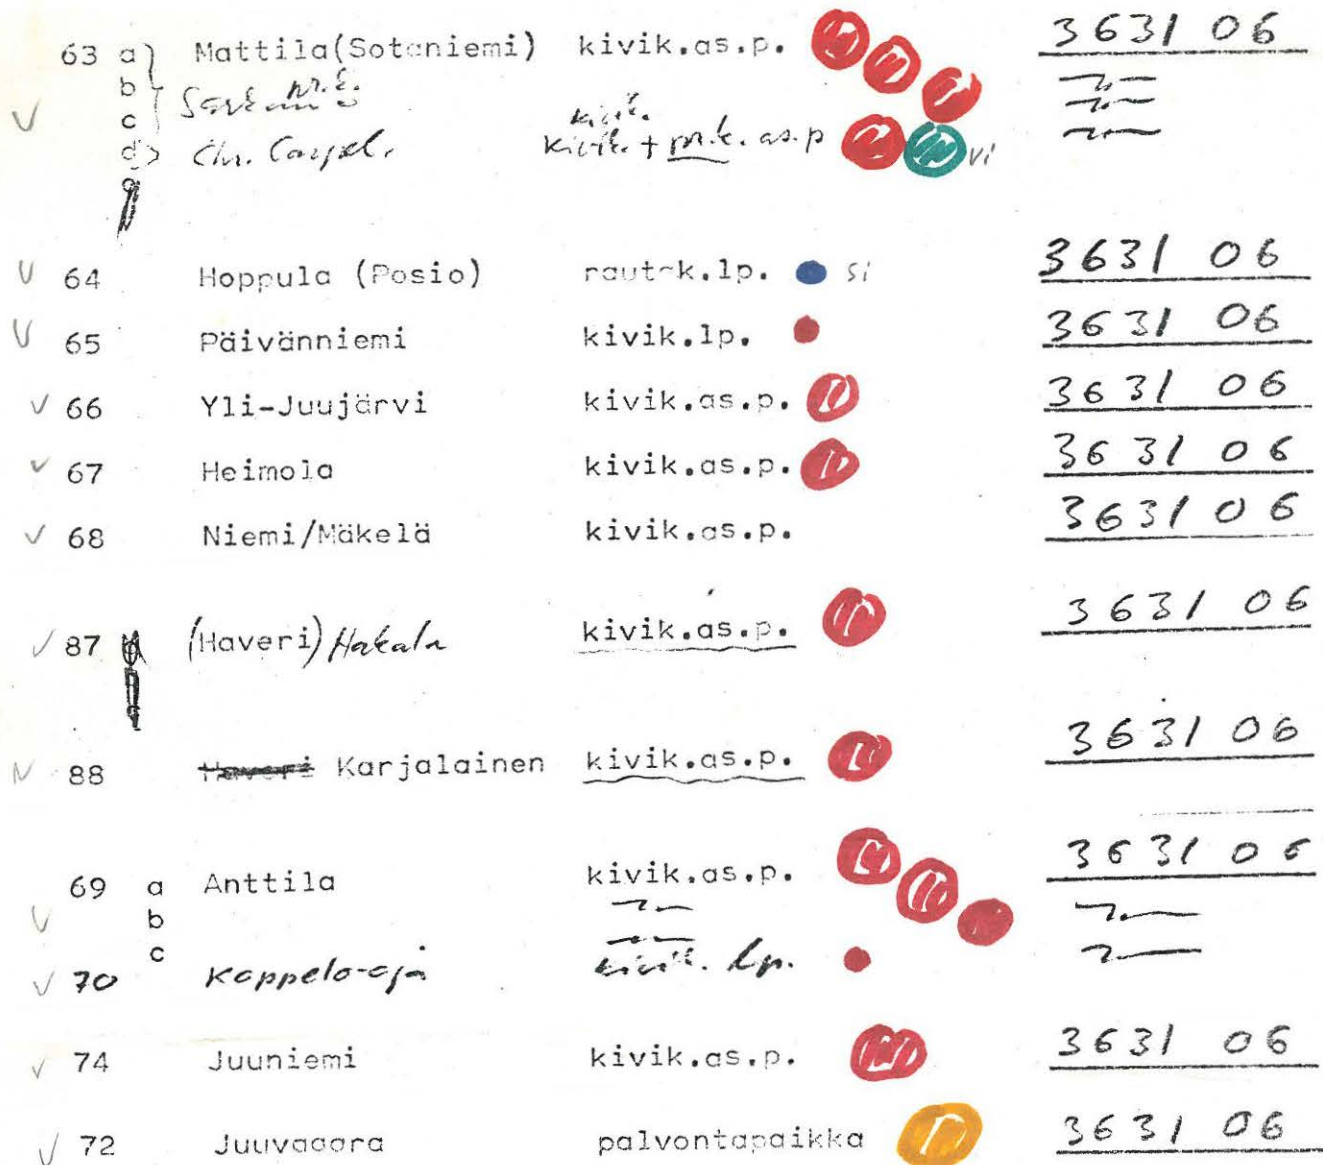 63 a Mattila(Sotaniemi) kivik.as.p. 3631 06
b
c kivik.
d Chr. Carpel. kivik. + pr.k. as.p vi
64 Hoppula (Posio) rautak.lp. si 3631 06
65 Päivänniemi kivik.lp. 3631 06
66 Yli-Juujärvi kivik.as.p. 3631 06
67 Heimola kivik.as.p. 3631 06
68 Niemi/Mäkelä kivik.as.p. 3631 06
87 (Haveri) Hakala kivik.as.p. 3631 06
88 Haveri Karjalainen kivik.as.p. 3631 06
69 a Anttila kivik.as.p. 3631 06
b
c
70 Koppelo-oja kivik. lp.
74 Juuniemi kivik.as.p. 3631 06
72 Juuvaara palvontapaikka 3631 06